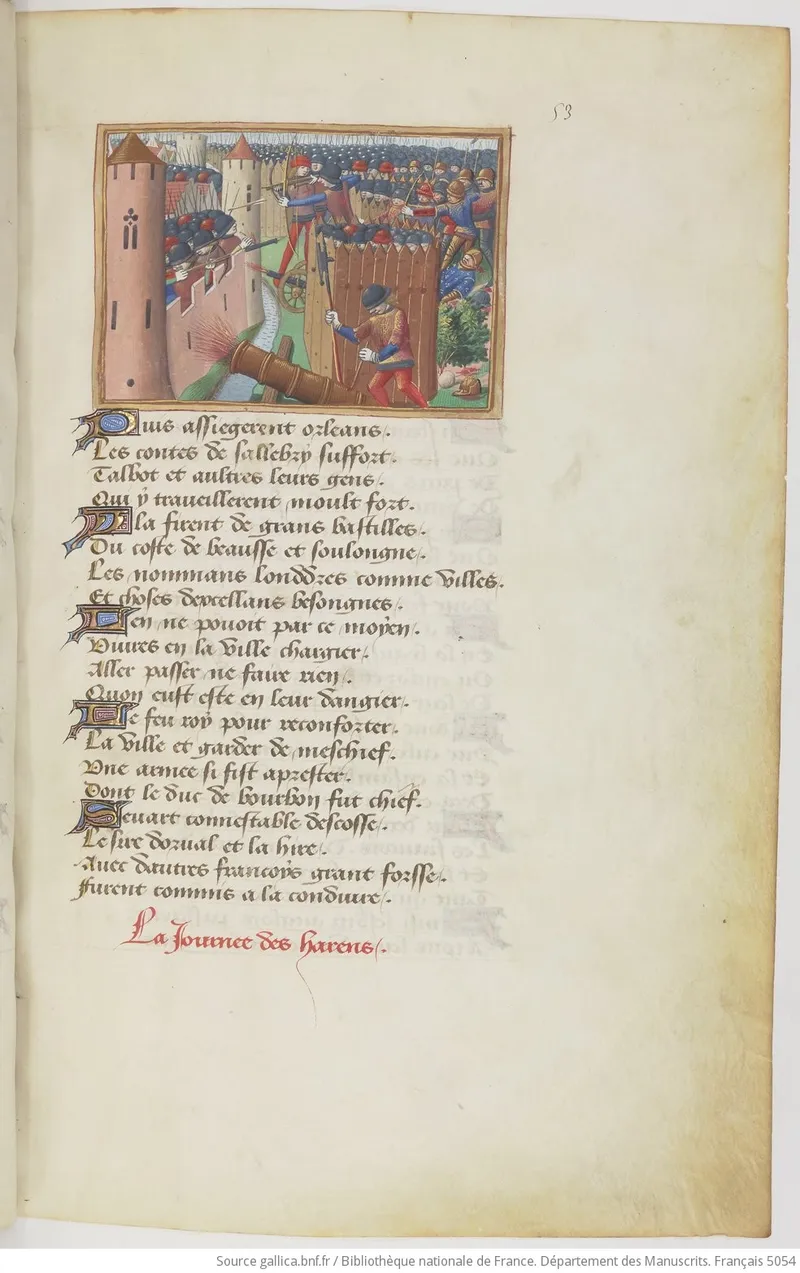 53
Puis assiegerent orleans.
Les contes de sallebry suffort.
Talbot et aultres leurs gens.
Qui y traveillerent moult fort.
La firent de grans bastilles.
Du coste de beausse et soulongne.
Les nommans londdres comme villes.
Et choses dexcellans besongnes.
Len ne povoit par ce moyen.
Vivres en la ville chargier.
Aller passer ne faire rien.
Quon eust este en leur dangier.
Le feu roy pour reconforter.
La ville et garder de meschief.
Une armee si fist aprester.
Dont le duc de bourbon fut chief.
Stevart connestable descosse.
Le sire dorval et la hire.
Avec dautres francoys grant forsse.
Furent commis a la conduire.
La Journee des harens.
Source gallica.bnf.fr / Bibliothèque nationale de France. Département des Manuscrits. Français 5054